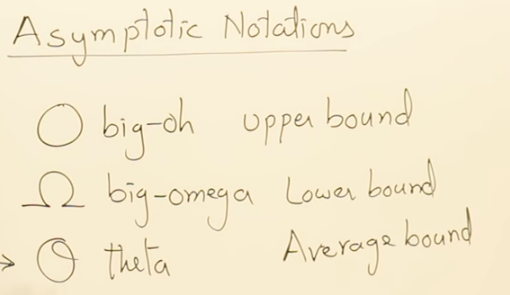 Asymptotic Notations
O big-oh upper bound
Ω big-omega Lower bound
→ θ theta Average bound